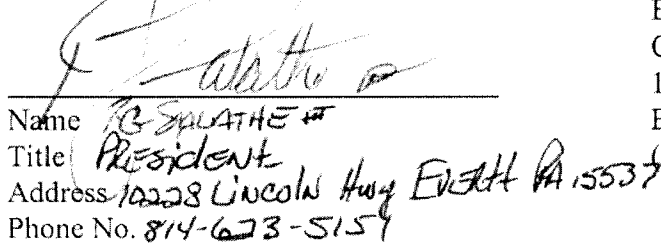 E
C
1
E
Name PG SPLATHE III
Title PRESIDENT
Address 10228 LINCOLN Hwy EVERETT PA 15537
Phone No. 814-623-5151